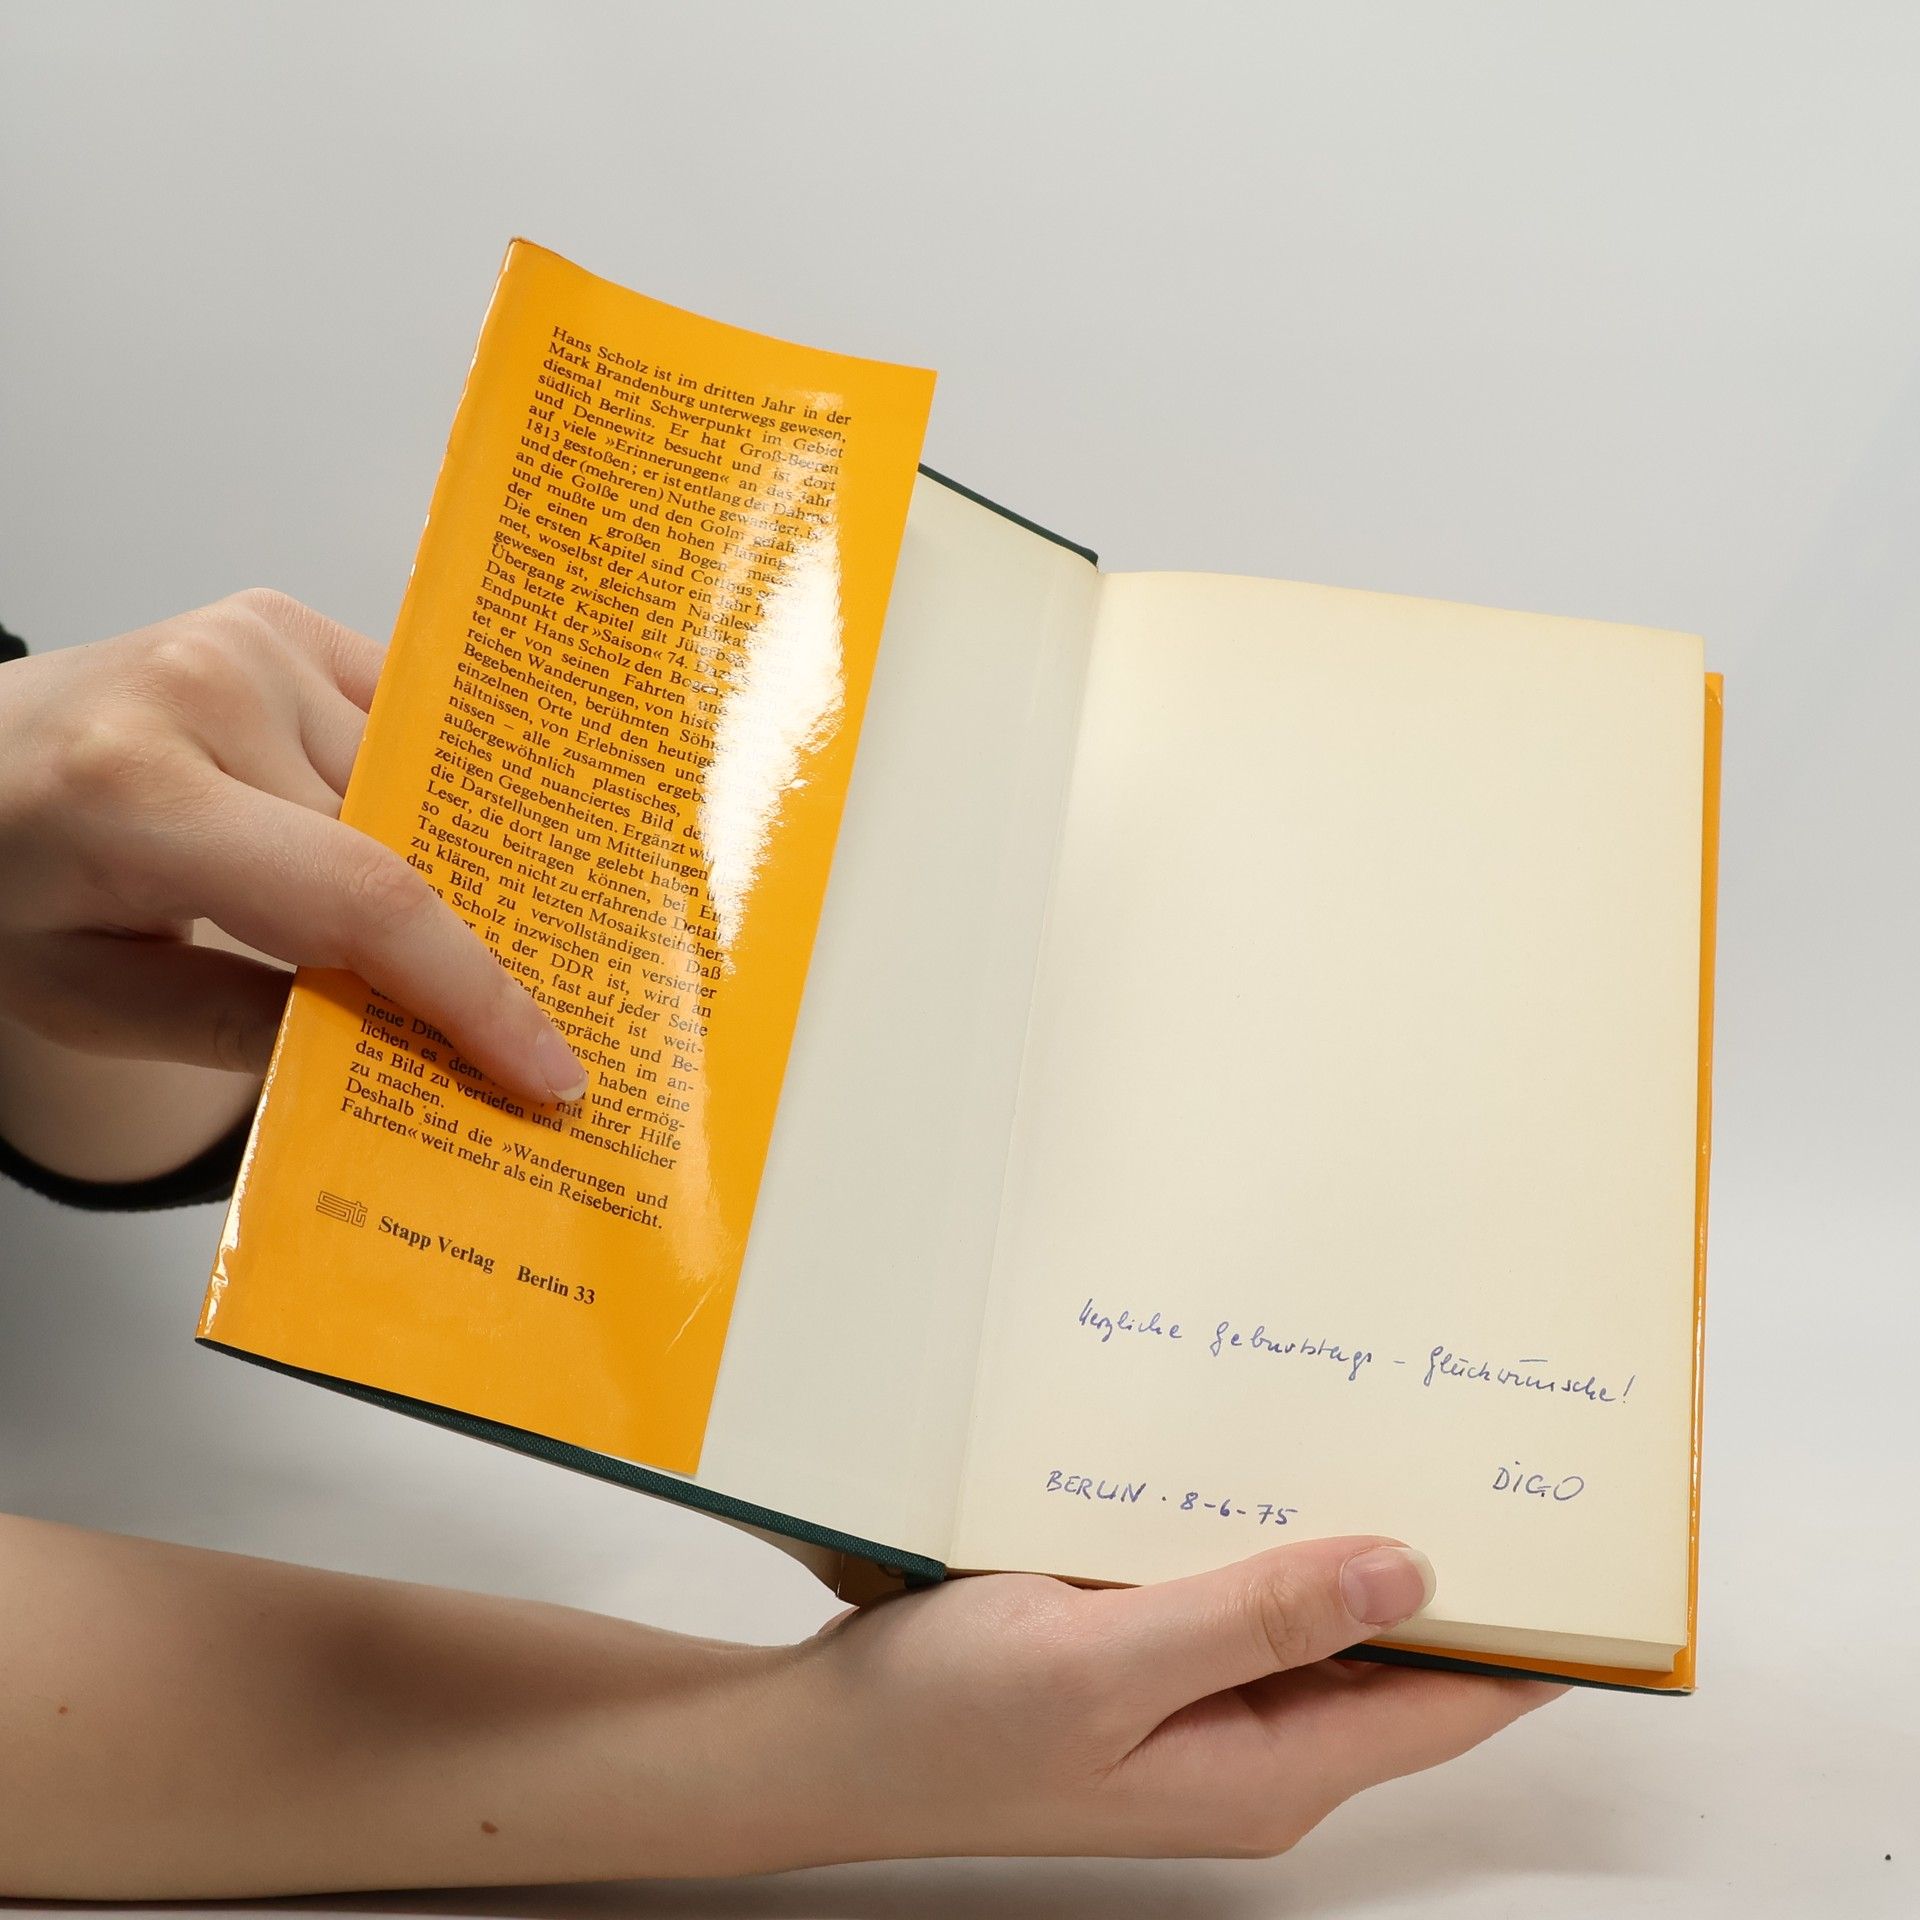 Hans Scholz ist im dritten Jahr in der
Mark Brandenburg unterwegs gewesen,
diesmal mit Schwerpunkt im Gebiet
südlich Berlins. Er hat Groß-Beeren
und Dennewitz besucht und ist dort
auf viele »Erinnerungen« an das Jahr
1813 gestoßen; er ist entlang der Dahme
und der (mehreren) Nuthe gewandert, ist
an die Golße und den Golm gefahren
und mußte um den hohen Fläming
der einen großen Bogen
Die ersten Kapitel sind Cottbus
met, woselbst der Autor ein Jahr
gewesen ist, gleichsam Nachlese und
Übergang zwischen den
Das letzte Kapitel gilt
Endpunkt der »Saison« 74.
spannt Hans Scholz den Bogen,
tet er von seinen Fahrten und
reichen Wanderungen, von
Begebenheiten, berühmten
einzelnen Orte und den
hältnissen, von Erlebnissen und
nissen – alle zusammen
außergewöhnlich plastisches,
reiches und nuanciertes Bild
zeitigen Gegebenheiten. Ergänzt
die Darstellungen um Mitteilungen
Leser, die dort lange gelebt haben
so dazu beitragen können, bei
Tagestouren nicht zu erfahrende
zu klären, mit letzten Mosaiksteinchen
das Bild zu vervollständigen. Daß
Scholz inzwischen ein versierter
in der DDR ist, wird an
fast auf jeder Seite
ist weit-
Gespräche und Be-
im an-
haben eine
neue und ermög-
lichen es dem mit ihrer Hilfe
das Bild zu vertiefen und menschlicher
zu machen.
Deshalb sind die »Wanderungen und
Fahrten« weit mehr als ein Reisebericht.
st Stapp Verlag Berlin 33
Herzliche Geburtstags - Glückwünsche!
DIGO
BERLIN . 8-6-75